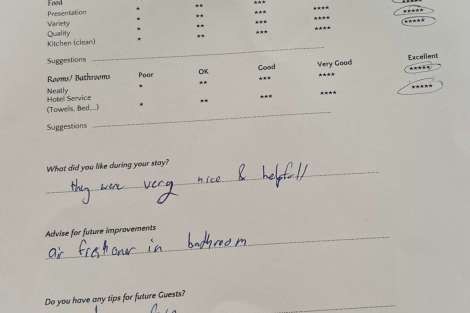 Food
Presentation * ** *** **** *****
Variety * ** *** **** *****
Quality * ** *** **** *****
Kitchen (clean) * ** *** ****
Suggestions
Rooms/ Bathrooms Poor OK Good Very Good Excellent
Neatly * ** *** **** *****
Hotel Service
(Towels, Bed,...) * ** *** **** *****
Suggestions
What did you like during your stay?
they were very nice & helpfull
Advise for future improvements
air freshaner in bathroom
Do you have any tips for future Guests?